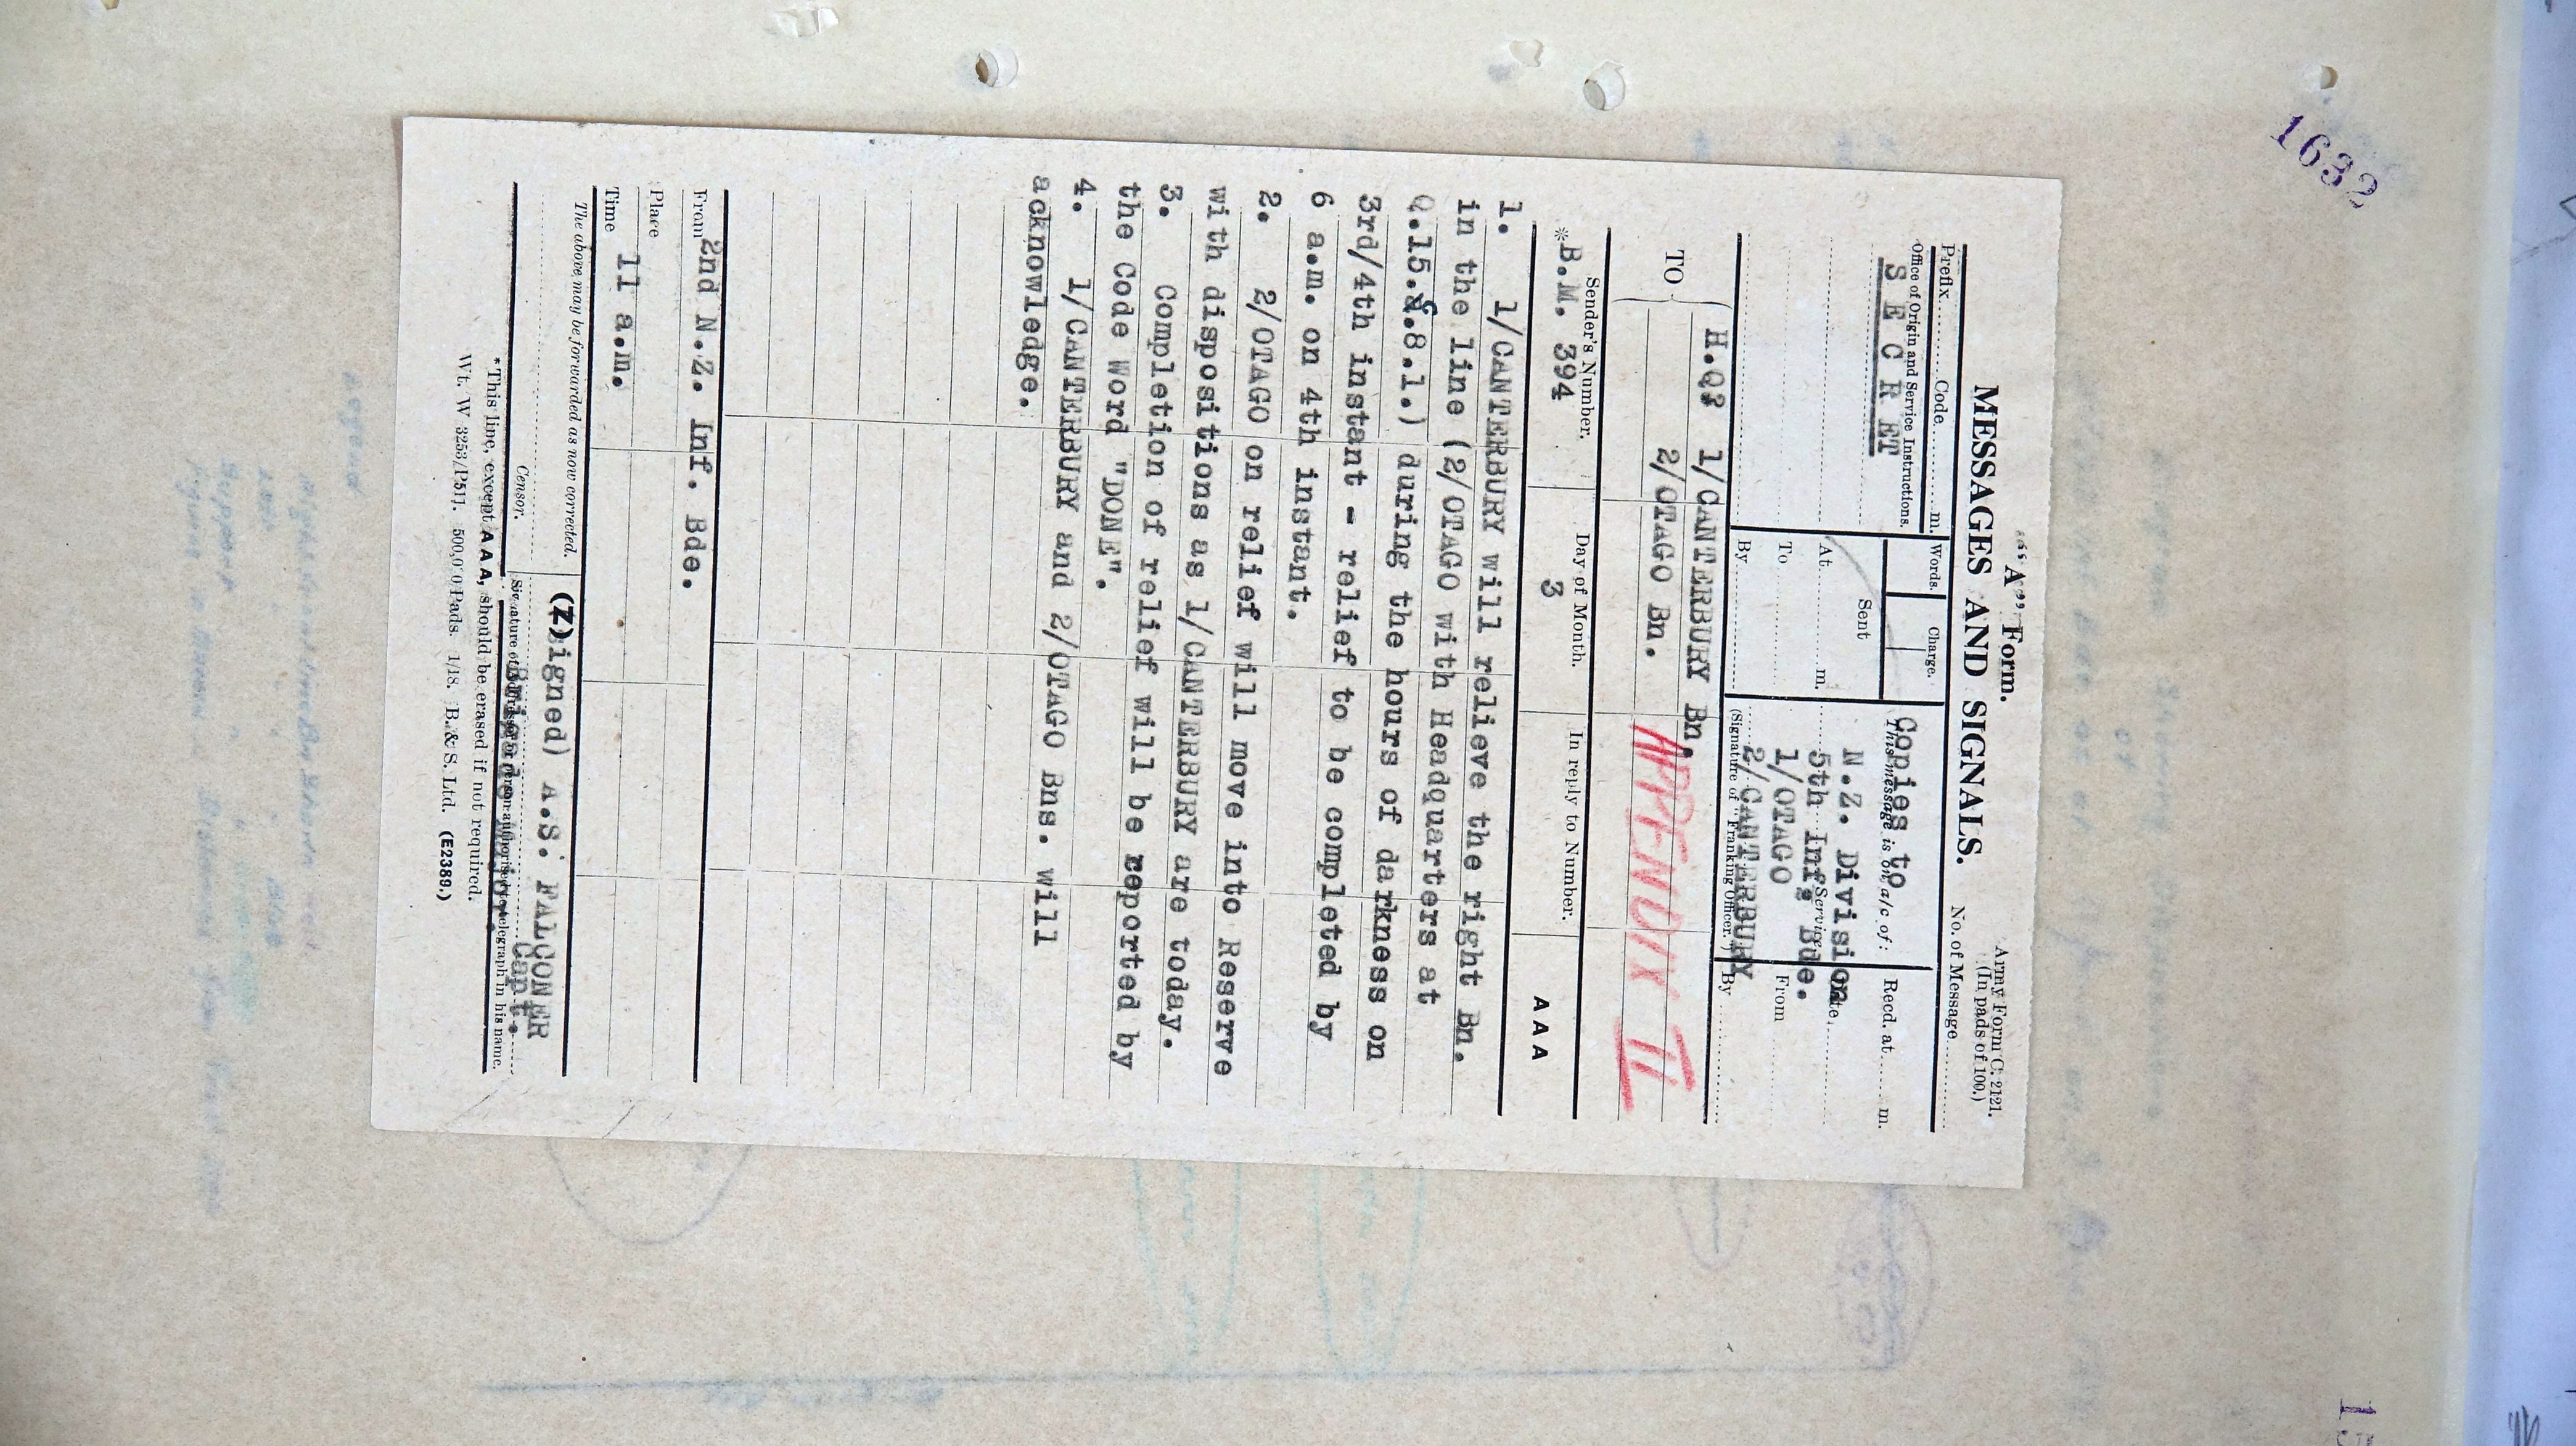 1632
"A" Form.
Army Form C. 2121.
(In pads of 100.)
MESSAGES AND SIGNALS.
No. of Message
Prefix Code m.
Words. Charge.
Copies to
This message is on a/c of:
Recd. at m.
Office of Origin and Service Instructions.
S E C R ET
Sent
N.Z. Division
Date
At m.
5th Inf. Bde.
Service
From
To
1/OTAGO
2/CANTERBURY
By
(Signature of "Franking Officer.")
By
TO
H.Q. 1/CANTERBURY Bn.
2/OTAGO Bn.
APPENDIX II
Sender's Number. Day of Month. In reply to Number.
*B.M. 394 3 A A A
1. 1/CANTERBURY will relieve the right Bn.
in the line (2/OTAGO with Headquarters at
Q.15.d.8.1.) during the hours of darkness on
3rd/4th instant - relief to be completed by
6 a.m. on 4th instant.
2. 2/OTAGO on relief will move into Reserve
with dispositions as 1/CANTERBURY are today.
3. Completion of relief will be reported by
the Code Word "DONE".
4. 1/CANTERBURY and 2/OTAGO Bns. will
acknowledge.
From 2nd N.Z. Inf. Bde.
Place
Time 11 a.m.
The above may be forwarded as now corrected. (Z)
(Signed) A.S. FALCONER
Capt.
Censor. Signature of Addressor or person authorised to telegraph in his name.
Brigade Major.
*This line, except A A A, should be erased if not required.
Wt. W 3253/P511. 500,000 Pads. 1/18. B. & S. Ltd. (E2389.)